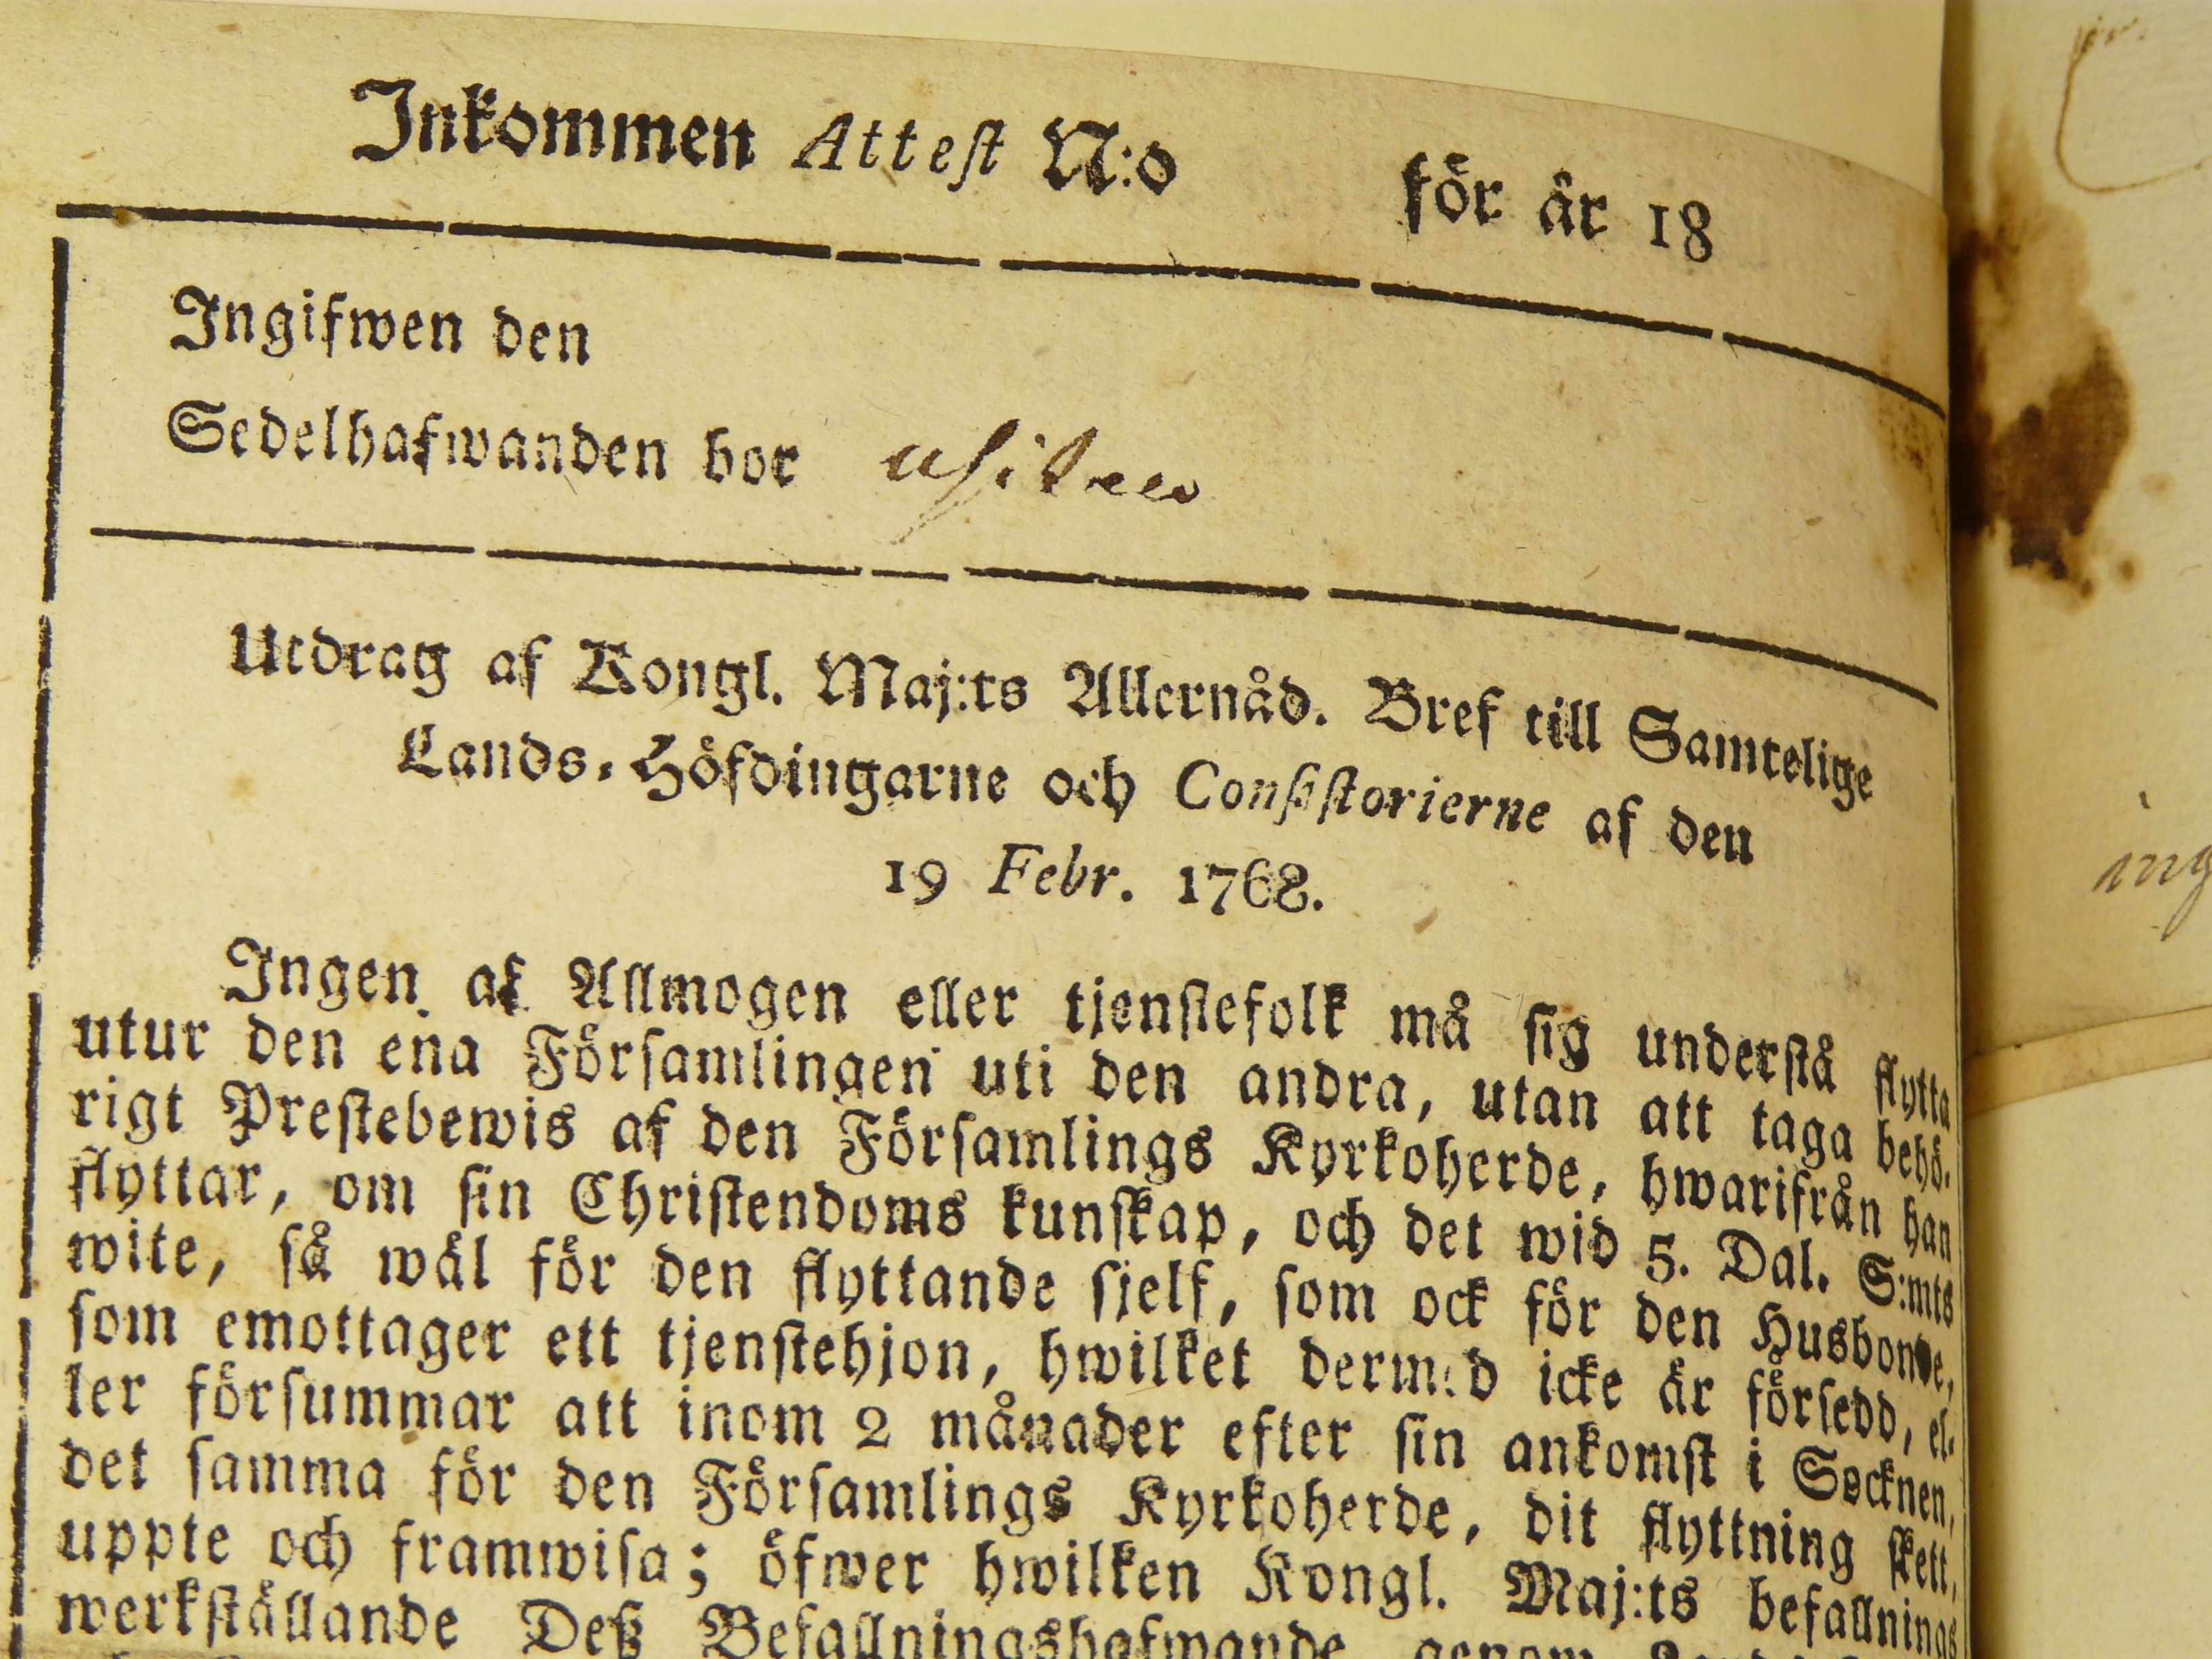 Inkommen Attest N:o för år 18
Ingifwen den
Sedelhafwanden bor
Utdrag af Kongl. Maj:ts Allernåd. Bref till Samtelige
Lands-Höfdingarne och Consistorierne af den
19 Febr. 1768.
Ingen af Allmogen eller tjenstefolk må sig understå flytta
utur den ena Församlingen uti den andra, utan att taga behö-
rigt Prestebewis af den Församlings Kyrkoherde, hwarifrån han
flyttar, om sin Christendoms kunskap, och det wid 5. Dal. S:mts
wite, så wäl för den flyttande sjelf, som ock för den Husbonde,
som emottager ett tjenstehjon, hwilket dermed icke är försedd, el-
ler försummar att inom 2 månader efter sin ankomst i Socknen,
det samma för den Församlings Kyrkoherde, dit flyttning skett,
uppte och framwisa; öfwer hwilken Kongl. Maj:ts befallnings
werkställande Deß Befallningshafwande genom
ing